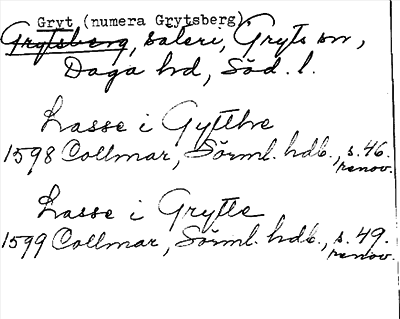 Gryt (numera Grytsberg)
Grytsberg, säteri, Gryts sn,
Daga hd, Söd. l.
Lasse i Gytthe
1598 Collmar, Sörml. hdl., s. 46.
renov.
Lasse i Grytte
1599 Collmar, Sörml. hdl., s. 49.
renov.